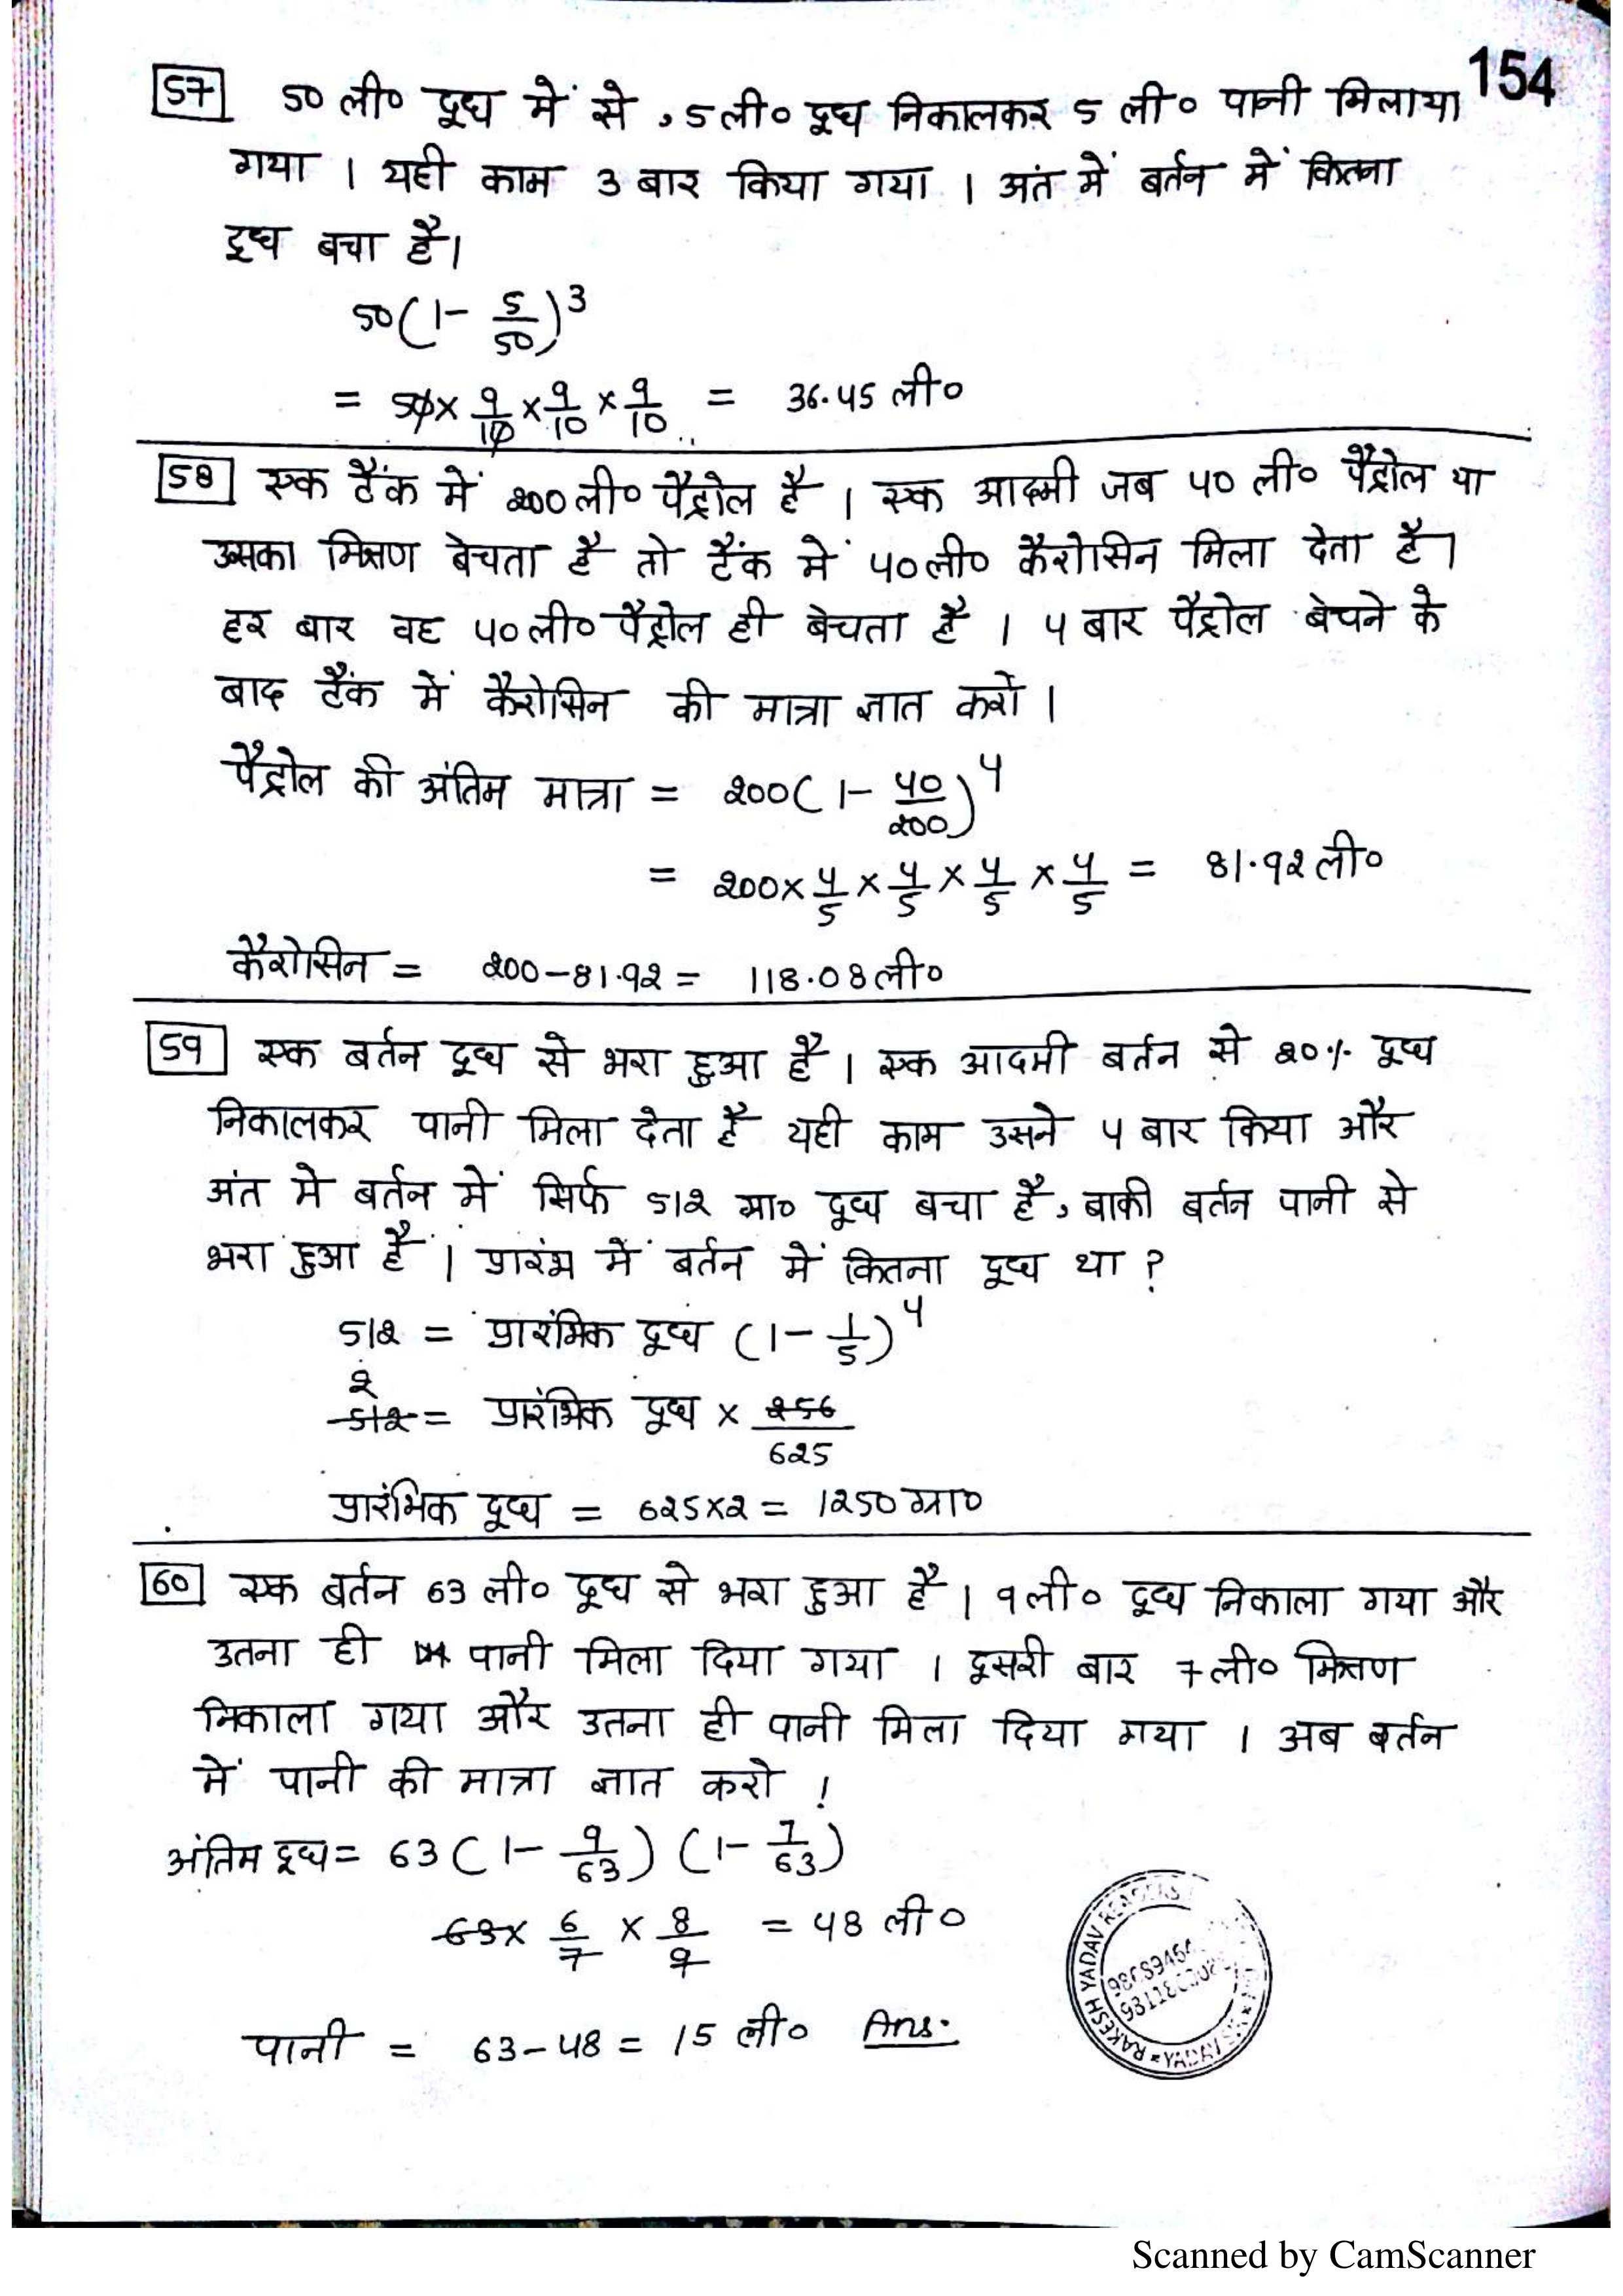 154
57 50 ली० दूध में से, 5 ली० दूध निकालकर 5 ली० पानी मिलाया
गया । यही काम 3 बार किया गया । अंत में बर्तन में कितना
दूध बचा है।
50(1- 5/50)^3
= 50 × 9/10 × 9/10 × 9/10 = 36.45 ली०
58 एक टैंक में 200 ली० पैट्रोल है । एक आदमी जब 40 ली० पैट्रोल या
उसका मिश्रण बेचता है तो टैंक में 40 ली० कैरोसिन मिला देता है।
हर बार वह 40 ली० पैट्रोल ही बेचता है । 4 बार पैट्रोल बेचने के
बाद टैंक में कैरोसिन की मात्रा ज्ञात करो ।
पैट्रोल की अंतिम मात्रा = 200(1- 40/200)^4
= 200 × 4/5 × 4/5 × 4/5 × 4/5 = 81.92 ली०
कैरोसिन = 200-81.92 = 118.08 ली०
59 एक बर्तन दूध से भरा हुआ है । एक आदमी बर्तन से 20% दूध
निकालकर पानी मिला देता है यही काम उसने 4 बार किया और
अंत मे बर्तन में सिर्फ 512 ग्रा० दूध बचा है, बाकी बर्तन पानी से
भरा हुआ है । प्रारंभ में बर्तन में कितना दूध था ?
512 = प्रारंभिक दूध (1- 1/5)^4
2
512 = प्रारंभिक दूध × 256/625
प्रारंभिक दूध = 625×2 = 1250 ग्रा०
60 एक बर्तन 63 ली० दूध से भरा हुआ है । 9 ली० दूध निकाला गया और
उतना ही पानी मिला दिया गया । दूसरी बार 7 ली० मिश्रण
निकाला गया और उतना ही पानी मिला दिया गया । अब बर्तन
में पानी की मात्रा ज्ञात करो !
अंतिम दूध = 63 (1- 9/63) (1- 7/63)
63 × 6/7 × 8/9 = 48 ली०
पानी = 63-48 = 15 ली० Ans.
RAKESH YADAV READERS
Scanned by CamScanner